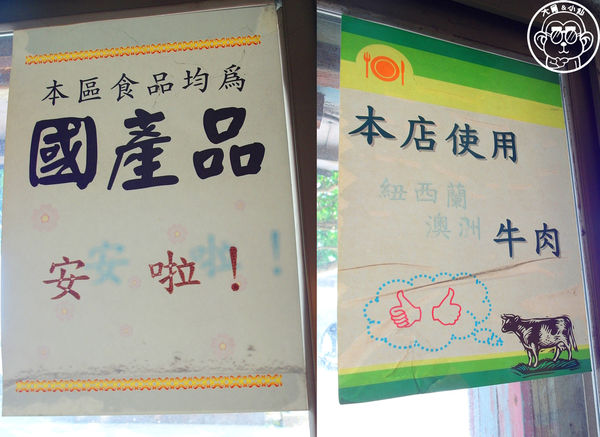 本區食品均爲
國產品
安啦！
大胃&小知
本店使用
紐西蘭
澳洲
牛肉